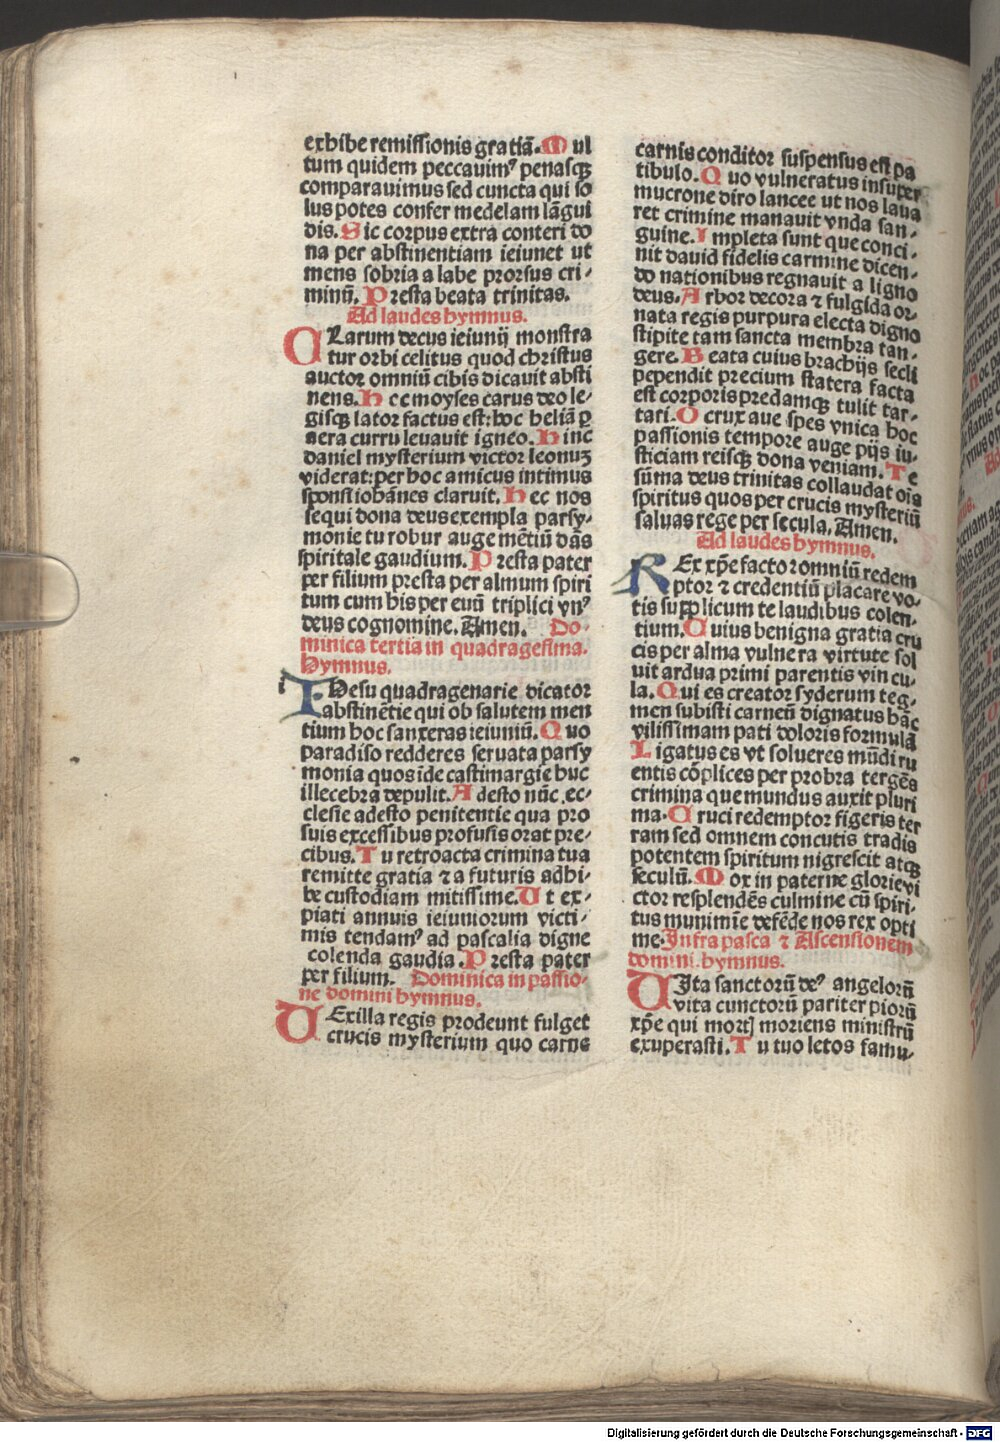 exhibe remissionis gratiã. Mul
tum quidem peccauimꝰ penasqꝫ
comparauimus sed cuncta qui so
lus potes confer medelam lãgui
dis. Sic corpus extra conteri do
na per abstinentiam ieiunet ut
mens sobria a labe prorsus cri⸗
minũ. Presta beata trinitas.
Ad laudes hymnus.
CLarum decus ieiunij monstra
tur orbi celitus quod christus
auctor omniũ cibis dicauit absti
nens. Hec moyses carus deo le⸗
gisqꝫ lator factus est: hoc heliã ꝑ
aera curru leuauit igneo. Hinc
daniel mysterium victor leonuꝫ
viderat: per hoc amicus intimus
sponsi iohãnes claruit. Hec nos
sequi dona deus exempla parsy⸗
monie tu robur auge mẽtiũ dãs
spiritale gaudium. Presta pater
per filium presta per almum spiri
tum cum his per euũ triplici vnꝰ
deus cognomine. Amen. Do⸗
minica tertia in quadragesima.
Hymnus.
i IHesu quadragenarie dicator
abstinẽtie qui ob salutem men
tium hoc sanxeras ieiuniũ. Quo
paradiso redderes seruata parsy
monia quos ide castimargie huc
illecebra depulit. Adesto nũc ec⸗
clesie adesto penitentie qua pro
suis excessibus profusis orat pre⸗
cibus. Tu retroacta crimina tua
remitte gratia ⁊ a futuris adhi⸗
be custodiam mitissime. Ut ex⸗
piati annuis ieiuniorum victi⸗
mis tendamꝰ ad pascalia digne
colenda gaudia. Presta pater
per filium. Dominica in passio⸗
ne domini hymnus.
UExilla regis prodeunt fulget
crucis mysterium quo carne
carnis conditor suspensus est pa
tibulo. Quo vulneratus insuper
mucrone diro lancee ut nos laua
ret crimine manauit vnda san⸗
guine. Impleta sunt que conci⸗
nit dauid fidelis carmine dicen⸗
do nationibus regnauit a ligno
deus. Arbor decora ⁊ fulgida or⸗
nata regis purpura electa digno
stipite tam sancta membra tan⸗
gere. Beata cuius brachijs secli
pependit precium statera facta
est corporis predamqꝫ tulit tar⸗
tari. O crux aue spes vnica hoc
passionis tempore auge pijs iu⸗
sticiam reisqꝫ dona veniam. Te
sũma deus trinitas collaudat oĩs
spiritus quos per crucis mysteriũ
saluas rege per secula. Amen.
Ad laudes hymnus.
REx xp̃e factor omniũ redem
ptor ⁊ credentiũ placare vo⸗
tis supplicum te laudibus colen⸗
tium. Cuius benigna gratia cru
cis per alma vulnera virtute sol
uit ardua primi parentis vincu⸗
la. Qui es creator syderum teg⸗
men subisti carneũ dignatus hãc
vilissimam pati doloris formulã
Ligatus es vt solueres mũdi ru
entis cõplices per probra tergẽs
crimina que mundus auxit pluri
ma. Cruci redemptor figeris ter
ram sed omnem concutis tradis
potentem spiritum nigrescit atqꝫ
seculũ. Mox in paterne glorie vi
ctor resplendẽs culmine cũ spiri⸗
tus munimĩe defẽde nos rex opti
me. Infra pasca ⁊ Ascensionem
domini. hymnus.
UIta sanctorũ deꝰ angelorũ
vita cunctorũ pariter piorũ
xp̃e qui mortꝭ moriens ministrũ
exuperasti. Tu tuo letos famu⸗
Digitalisierung gefördert durch die Deutsche Forschungsgemeinschaft - DFG